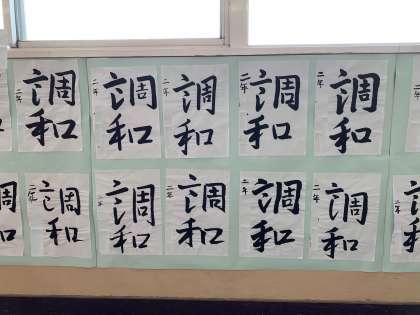 調和
二年
調和
二年
調和
二年
調和
二年
調和
二年
調和
二年
調和
二年
調和
二年
調和
二年
調和
二年
二年